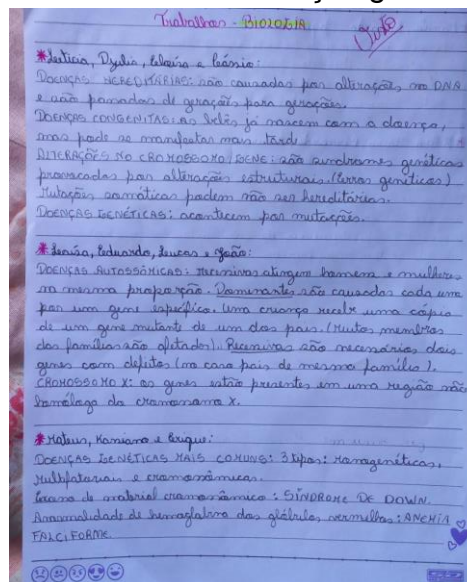 Trabalhos - BIOLOGIA
Visto
*Letícia, Dyulia, Heloisa e Cássio:
DOENÇAS HEREDITÁRIAS: são causadas por alterações no DNA
e são passadas de gerações para gerações.
DOENÇAS CONGENITAS: os bebês já nascem com a doença,
mas pode se manifestar mais tarde.
ALTERAÇÕES NO CROMOSSOMO/GENE: são síndromes genéticas
provocadas por alterações estruturais. (Erros genéticos)
Mutações somáticas podem não ser hereditárias.
DOENÇAS GENÉTICAS: acontecem por mutações.
Eduardo, Lucas e João:
DOENÇAS AUTOSSÔMICAS: recessivas atingem homens e mulheres
na mesma proporção. Dominantes são causadas cada uma
por um gene específico. Uma criança recebe uma cópia
de um gene mutante de um dos pais. (Muitos membros
das famílias são afetados). Recessivas são necessários dois
genes com defeitos (no caso pais de mesma família).
CROMOSSOMO X: os genes estão presentes em uma região não
homóloga do cromossomo X.
*Mateus, e Érique:
DOENÇAS GENÉTICAS MAIS COMUNS: 3 tipos: monogenéticas,
multifatoriais e cromossômicas.
de material cromossômico: SÍNDROME DE DOWN.
Anormalidade de hemoglobina dos glóbulos vermelhos: ANEMIA
FALCIFORME.